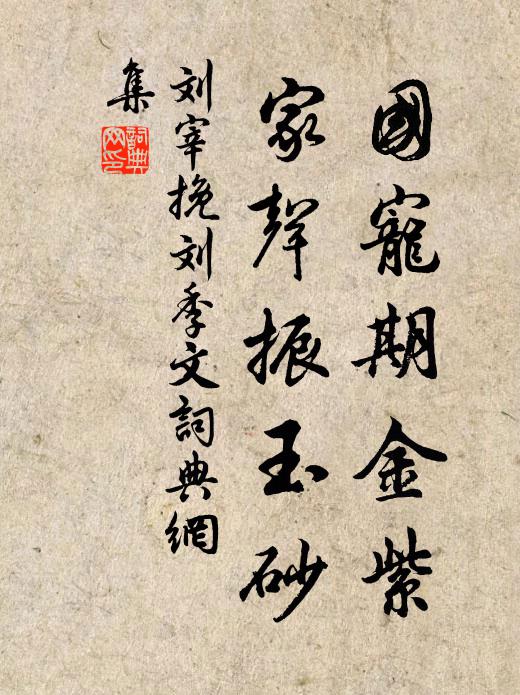 國寵期金紫
家聲振玉砂
刘宰挽刘季文詞典網
集
詞典網印